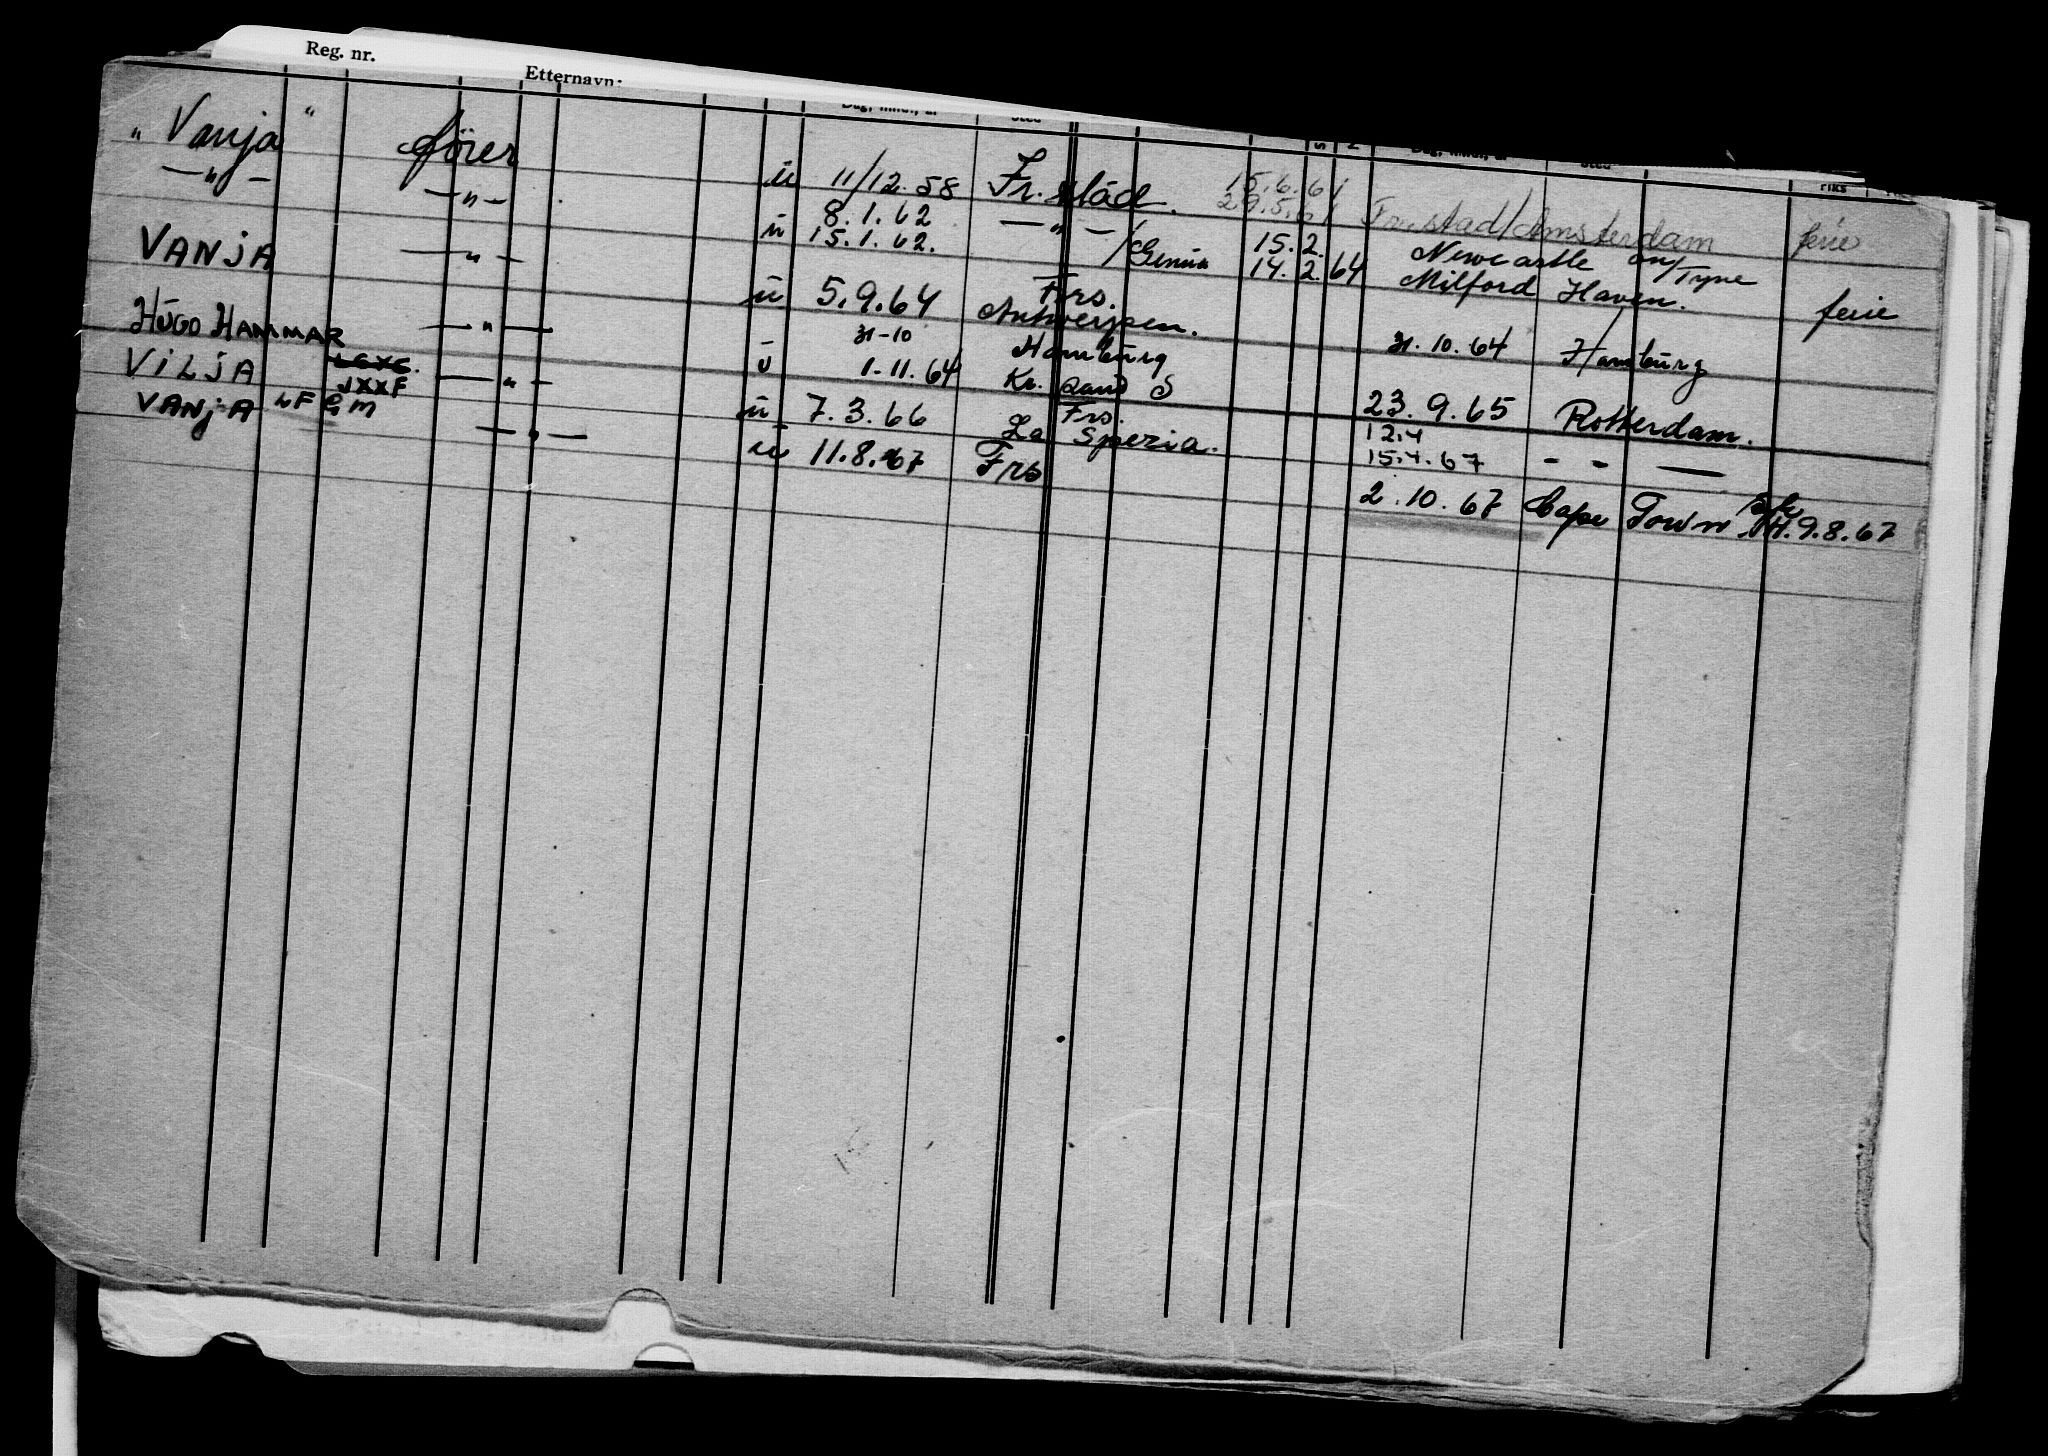 Reg. nr.
Etternavn:
"Vanja" förer ü 11/12.58 Fr.stad. 15.6.61 29.5.61 Fr.stad/Amsterdam ferie
—"— —"— ü 8.1.62 15.1.62. —"—/Genua 15.2. 14.2.64 Newcastle on/Tyne Milford Haven. ferie
VANJA —"— ü 5.9.64 Frs. Antwerpen. 31.10.64 Hamburg
HUGO HAMMAR —"— - 31-10 1.11.64 Hamburg Kr. sand S 23.9.65 Rotterdam.
VILJA JXXF —"— ü 7.3.66 Frs. La Spezia. 12.4 15.4.67 - - —
VANJA LFGM —"— ü 11.8.67 Frs 2.10.67 Cape Town 9.8.67